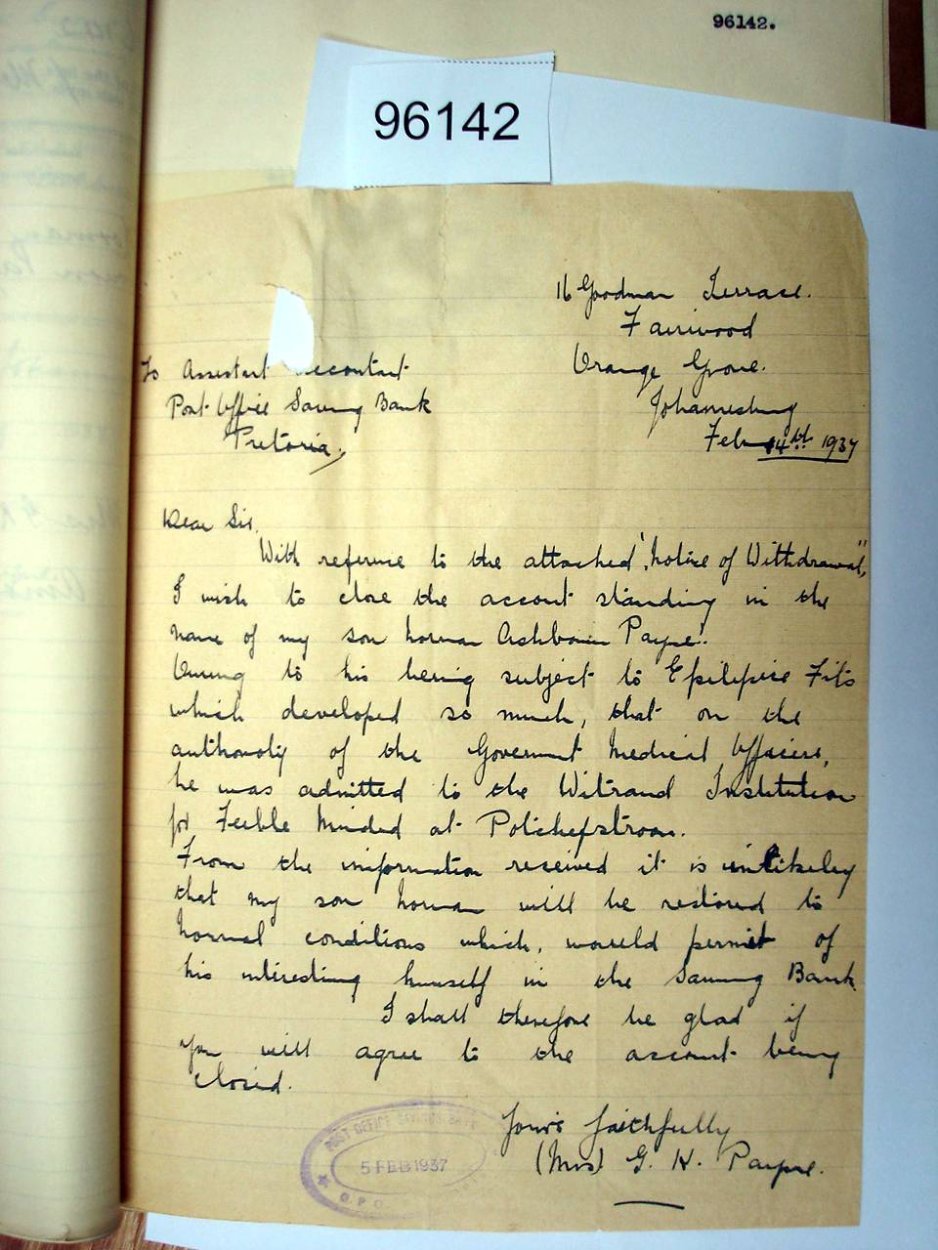 96142.
96142
16 Goodman Terrace.
Fairwood
Orange Grove.
Johannesburg
Feb 4th 1937
To Assistant Accountant
Post Office Saving Bank
Pretoria.
Dear Sir.
With reference to the attached "Notice of Withdrawal",
I wish to close the account standing in the
name of my son Norman Payne.
Owing to his being subject to Fits
which developed so much, that on the
of the Government Medical Officers,
he was admitted to the Witrand Institution
for Feeble Minded at Potchefstroom.
From the information received it is unlikeley
that my son Norman will be restored to
normal conditions which, would permit of
his interesting himself in the Saving Bank
I shall therefore be glad if
you will agree to the account being
closed.
Yours faithfully
(Mrs) G. H. Payne.
POST OFFICE SAVINGS BANK
5 FEB 1937
G.P.O.